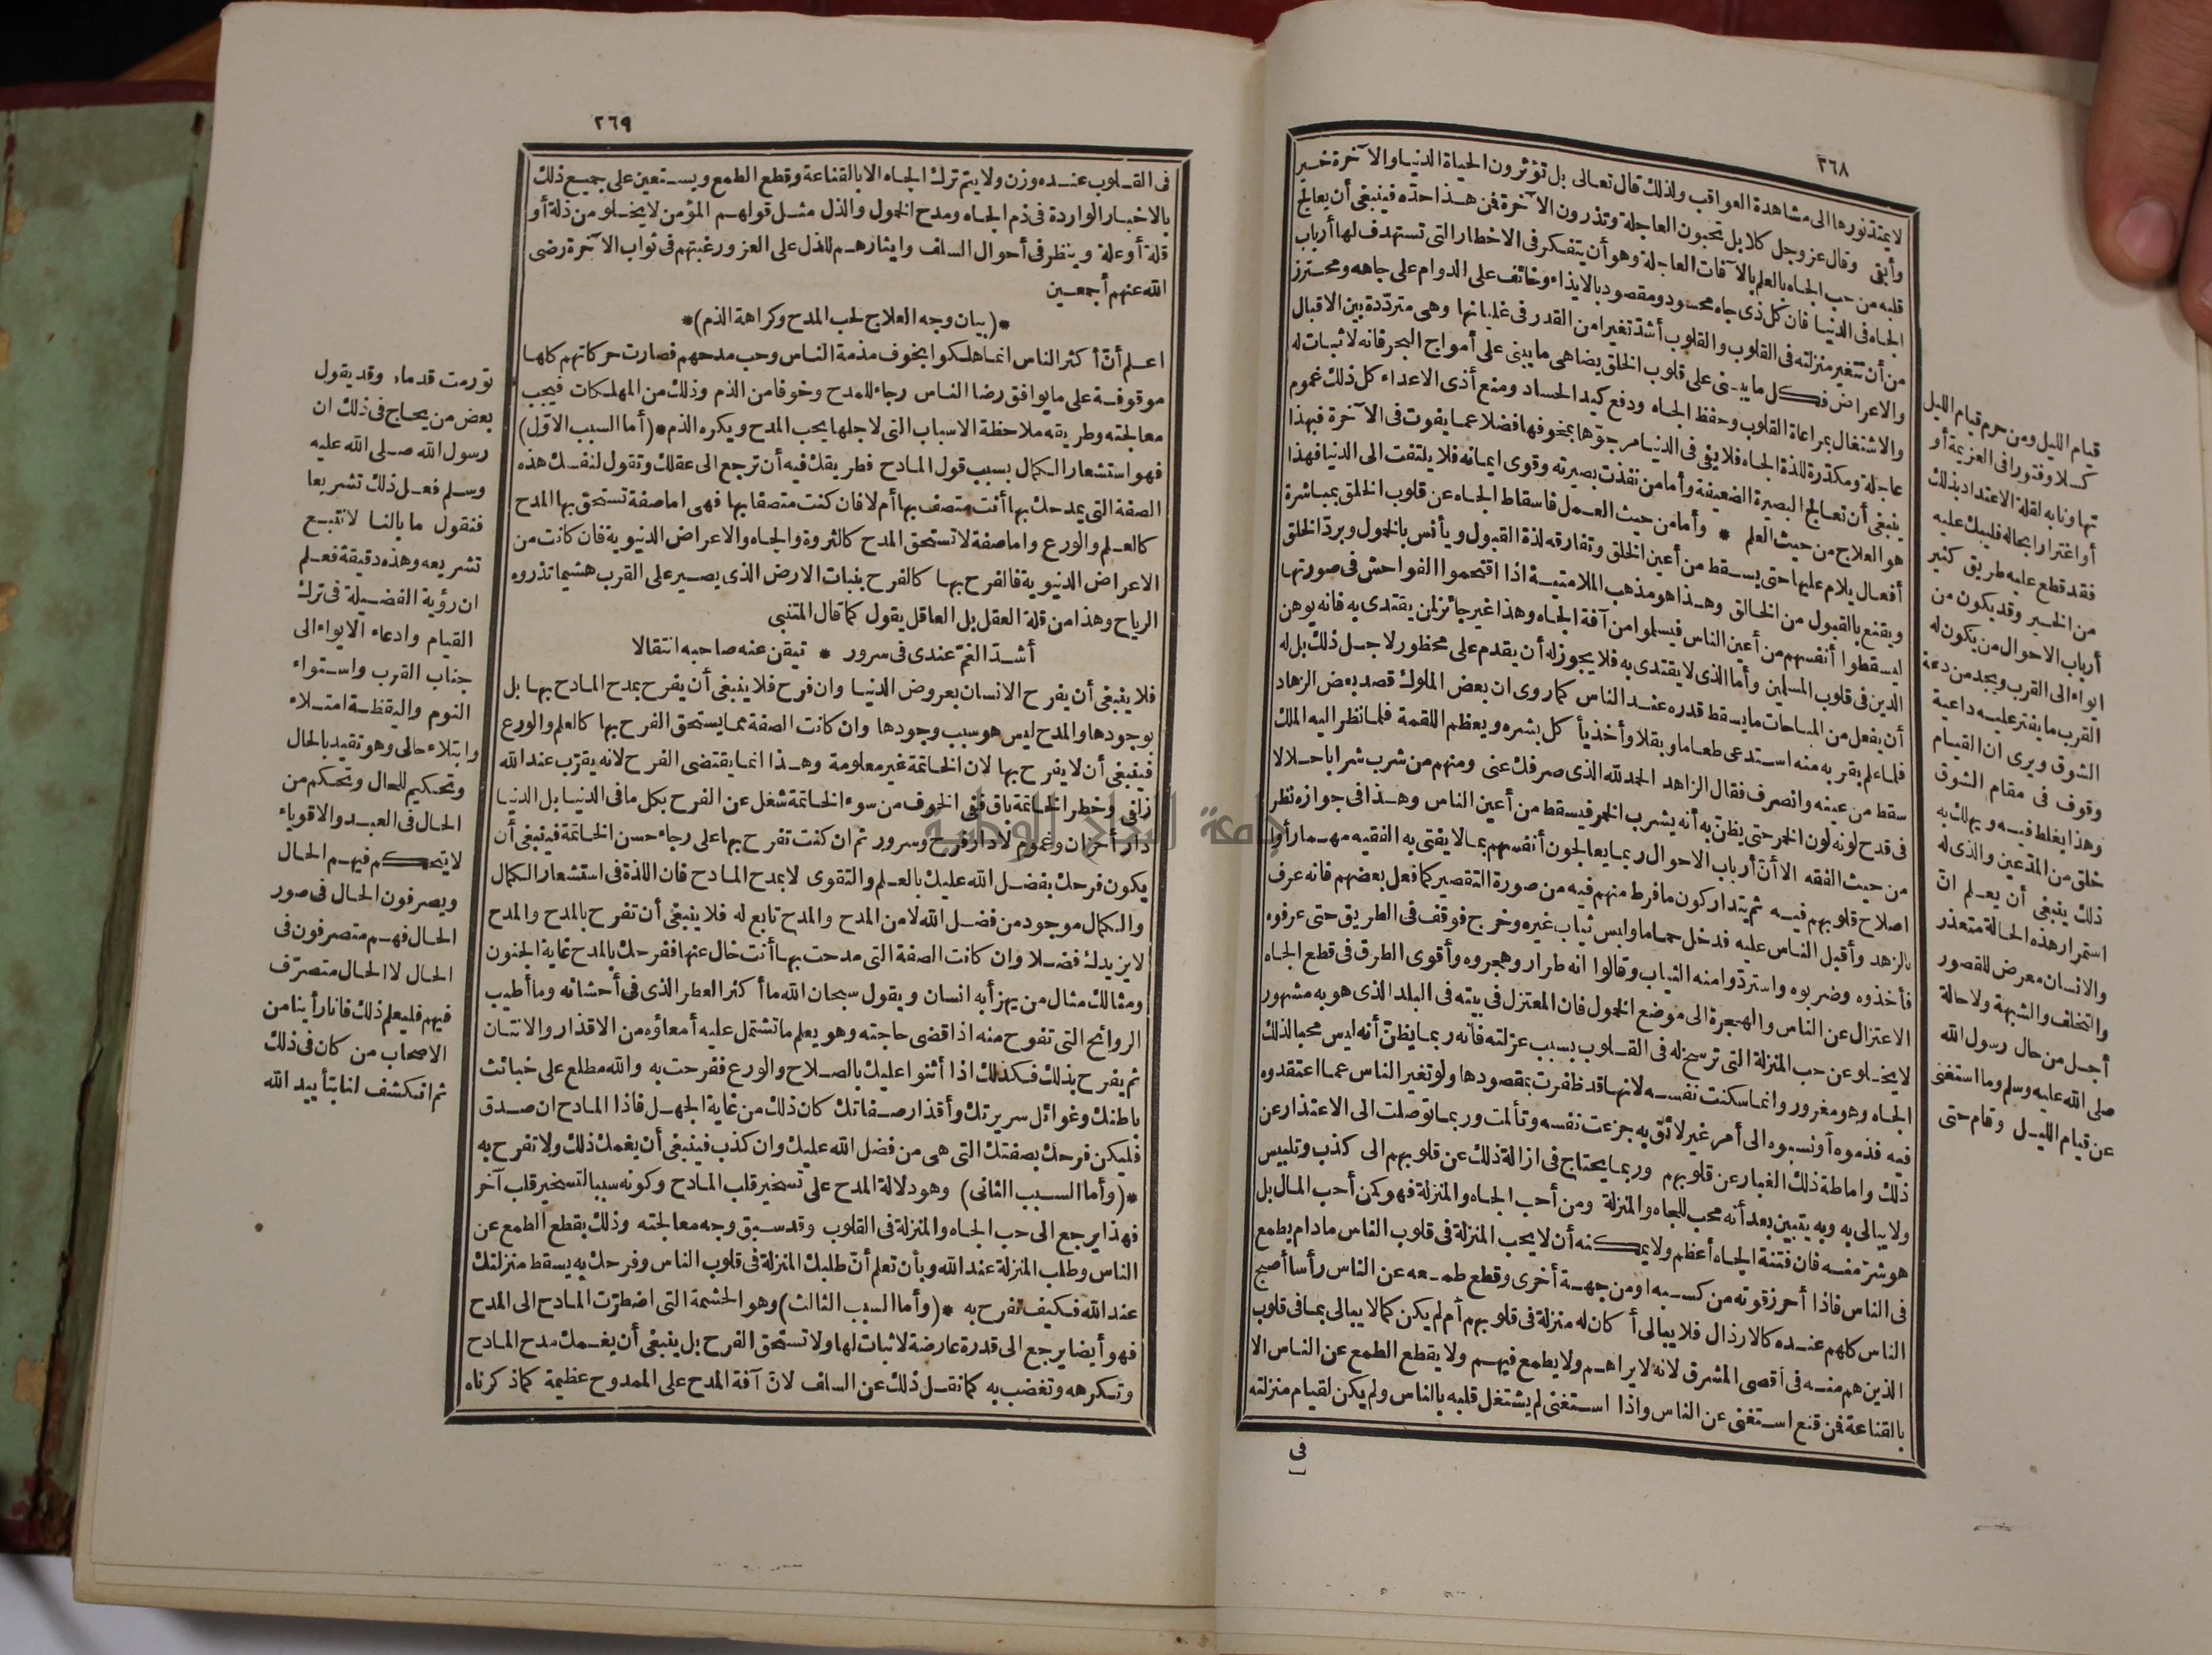 ٢٦٨
لا يمتد نورها الى مشاهدة العواقب ولذلك قال تعالى بل تؤثرون الحياة الدنيا والآخرة خير
وأبقى وقال عز وجل كلا بل تحبون العاجلة وتذرون الآخرة فمن هذا حده فينبغى أن يعالج
قلبه من حب الجاه بالعلم بالآفات العاجلة وهو أن يتفكر فى الاخطار التى تستهدف لها أرباب
الجاه فى الدنيا فان كل ذى جاه محسود ومقصود بالايذاء وخائف على الدوام على جاهه ومحترز
من أن تتغير منزلته فى القلوب والقلوب أشد تغيرا من القدر فى غليانها وهى مترددة بين الاقبال
والاعراض فكل ما يبنى على قلوب الخلق يضاهى ما يبنى على أمواج البحر فانه لا ثبات له
والاشتغال بمراعاة القلوب وحفظ الجاه ودفع كيد الحساد ومنع أذى الاعداء كل ذلك غموم
عاجلة ومكدرة للذة الجاه فلا يفى فى الدنيا مرجوّها بمخوفها فضلا عما يفوت فى الآخرة فبهذا
ينبغى أن تعالج البصيرة الضعيفة وأما من نفذت بصيرته وقوى ايمانه فلا يلتفت الى الدنيا فهذا
هو العلاج من حيث العلم * وأما من حيث العمل فاسقاط الجاه عن قلوب الخلق بمباشرة
أفعال يلام عليها حتى يسقط من أعين الخلق وتفارقه لذة القبول ويأنس بالخمول ويرد الخلق
ويقنع بالقبول من الخالق وهذا هو مذهب الملامتية اذا اقتحموا الفواحش فى صورتها
ليسقطوا أنفسهم من أعين الناس فيسلموا من آفة الجاه وهذا غير جائز لمن يقتدى به فانه يوهن
الدين فى قلوب المسلمين وأما الذى لا يقتدى به فلا يجوز له أن يقدم على محظور لاجل ذلك بل له
أن يفعل من المباحات ما يسقط قدره عند الناس كما روى ان بعض الملوك قصد بعض الزهاد
فلما علم بقربه منه استدعى طعاما وبقلا وأخذ يأكل بشره ويعظم اللقمة فلما نظر اليه الملك
سقط من عينه وانصرف فقال الزاهد الحمد لله الذى صرفك عنى ومنهم من شرب شرابا حلالا
فى قدح لونه لون الخمر حتى يظن به أنه يشرب الخمر فيسقط من أعين الناس وهذا فى جوازه نظر
من حيث الفقه الا أن أرباب الاحوال ربما يعالجون أنفسهم بما لا يفتى به الفقيه مهما رأوا
اصلاح قلوبهم فيه ثم يتداركون ما فرط منهم فيه من صورة التقصير كما فعل بعضهم فانه عرف
بالزهد وأقبل الناس عليه فدخل حماما ولبس ثياب غيره وخرج فوقف فى الطريق حتى عرفوه
فأخذوه وضربوه واستردوا منه الثياب وقالوا انه طرار وهجروه وأقوى الطرق فى قطع الجاه
الاعتزال عن الناس والهجرة الى موضع الخمول فان المعتزل فى بيته فى البلد الذى هو به مشهور
لا يخلو عن حب المنزلة التى ترسخ له فى القلوب بسبب عزلته فانه ربما يظن أنه ليس محبا لذلك
الجاه وهو مغرور وانما سكنت نفسه لانها قد ظفرت بمقصودها ولو تغير الناس عما اعتقدوه
فيه فذموه أو نسبوه الى أمر غير لائق به جزعت نفسه وتألمت وربما توصلت الى الاعتذار عن
ذلك واماطة ذلك الغبار عن قلوبهم وربما يحتاج فى ازالة ذلك عن قلوبهم الى كذب وتلبيس
ولا يبالى به وبه يتبين بعد أنه محب للجاه والمنزلة ومن أحب الجاه والمنزلة فهو كمن أحب المال بل
هو شرّ منه فان فتنة الجاه أعظم ولا يمكنه أن لا يحب المنزلة فى قلوب الناس ما دام يطمع
فى الناس فاذا أحرز قوته من كسبه أو من جهة أخرى وقطع طمعه عن الناس رأسا أصبح
الناس كلهم عنده كالارذال فلا يبالى أكان له منزلة فى قلوبهم أم لم يكن كما لا يبالى بما فى قلوب
الذين هم منه فى أقصى المشرق لانه لا يراهم ولا يطمع فيهم ولا يقطع الطمع عن الناس الا
بالقناعة فمن قنع استغنى عن الناس واذا استغنى لم يشتغل قلبه بالناس ولم يكن لقيام منزلته
فى
قيام الليل ومن حرم قيام الليل
كسلا وفتورا فى العزيمة أو
تهاونا به لقلة الاعتداد بذلك
أو اغترارا بحاله فليبك عليه
فقد قطع عليه طريق كثير
من الخير وقد يكون من
أرباب الاحوال من يكون له
ايواء الى القرب ويجد من دعة
القرب ما يفتر عليه داعية
الشوق ويرى ان القيام
وقوف فى مقام الشوق
وهذا يغلط فيه ويهلك به
خلق من المدّعين والذى له
ذلك ينبغى أن يعلم ان
استمرار هذه الحالة متعذر
والانسان معرض للقصور
والتخلف والشبهة ولا حالة
أجل من حال رسول الله
صلى الله عليه وسلم وما استغنى
عن قيام الليل وقام حتى
٢٦٩
فى القلوب عنده وزن ولا يتم ترك الجاه الا بالقناعة وقطع الطمع ويستعين على جميع ذلك
بالاخبار الواردة فى ذم الجاه ومدح الخمول والذل مثل قولهم المؤمن لا يخلو من ذلة أو
قلة أو علة وينظر فى أحوال السلف وايثارهم للذل على العز ورغبتهم فى ثواب الآخرة رضى
الله عنهم أجمعين
*(بيان وجه العلاج لحب المدح وكراهة الذم)*
اعلم أن أكثر الناس انما هلكوا بخوف مذمة الناس وحب مدحهم فصارت حركاتهم كلها
موقوفة على ما يوافق رضا الناس رجاء للمدح وخوفا من الذم وذلك من المهلكات فيجب
معالجته وطريقه ملاحظة الاسباب التى لاجلها يحب المدح ويكره الذم *(أما السبب الاوّل)
فهو استشعار الكمال بسبب قول المادح فطريقك فيه أن ترجع الى عقلك وتقول لنفسك هذه
الصفة التى يمدحك بها أأنت متصف بها أم لا فان كنت متصفا بها فهى اما صفة تستحق بها المدح
كالعلم والورع واما صفة لا تستحق المدح كالثروة والجاه والاعراض الدنيوية فان كانت من
الاعراض الدنيوية فالفرح بها كالفرح بنبات الارض الذى يصير على القرب هشيما تذروه
الرياح وهذا من قلة العقل بل العاقل يقول كما قال المتنبى
أشدّ الغمّ عندى فى سرور * تيقن عنه صاحبه انتقالا
فلا ينبغى أن يفرح الانسان بعروض الدنيا وان فرح فلا ينبغى أن يفرح بمدح المادح بها بل
بوجودها والمدح ليس هو سبب وجودها وان كانت الصفة مما يستحق الفرح بها كالعلم والورع
فينبغى أن لا يفرح بها لان الخاتمة غير معلومة وهذا انما يقتضى الفرح لانه يقرّب عند الله
زلفى وخطر الخاتمة باق ففى الخوف من سوء الخاتمة شغل عن الفرح بكل ما فى الدنيا بل الدنيا
دار أحزان وغموم لا دار فرح وسرور ثم ان كنت تفرح بها على رجاء حسن الخاتمة فينبغى أن
يكون فرحك بفضل الله عليك بالعلم والتقوى لا بمدح المادح فان اللذة فى استشعار الكمال
والكمال موجود من فضل الله لا من المدح والمدح تابع له فلا ينبغى أن تفرح بالمدح والمدح
لا يزيدك فضلا وان كانت الصفة التى مدحت بها أنت خال عنها ففرحك بالمدح غاية الجنون
ومثالك مثال من يهزأ به انسان ويقول سبحان الله ما أكثر العطر الذى فى أحشائه وما أطيب
الروائح التى تفوح منه اذا قضى حاجته وهو يعلم ما تشتمل عليه أمعاؤه من الاقذار والانتان
ثم يفرح بذلك فكذلك اذا أثنوا عليك بالصلاح والورع ففرحت به والله مطلع على خبائث
باطنك وغوائل سريرتك وأقذار صفاتك كان ذلك من غاية الجهل فاذا المادح ان صدق
فليكن فرحك بصفتك التى هى من فضل الله عليك وان كذب فينبغى أن يغمك ذلك ولا تفرح به
*(وأما السبب الثانى) وهو دلالة المدح على تسخير قلب المادح وكونه سببا لتسخير قلب آخر
فهذا يرجع الى حب الجاه والمنزلة فى القلوب وقد سبق وجه معالجته وذلك بقطع الطمع عن
الناس وطلب المنزلة عند الله وبأن تعلم أنّ طلبك المنزلة فى قلوب الناس وفرحك به يسقط منزلتك
عند الله فكيف تفرح به *(وأما السبب الثالث) وهو الحشمة التى اضطرّت المادح الى المدح
فهو أيضا يرجع الى قدرة عارضة لا ثبات لها ولا تستحق الفرح بل ينبغى أن يغمك مدح المادح
وتكرهه وتغضب به كما نقل ذلك عن السلف لانّ آفة المدح على الممدوح عظيمة كما ذكرناه
تورمت قدماه وقد يقول
بعض من يحاج فى ذلك ان
رسول الله صلى الله عليه
وسلم فعل ذلك تشريعا
فنقول ما بالنا لا نتبع
تشريعه وهذه دقيقة فعلم
ان رؤية الفضيلة فى ترك
القيام وادعاء الايواء الى
جناب القرب واستواء
النوم واليقظة امتلاء
وابتلاء حالى وهو تقيد بالحال
وتحكيم للحال وتحكم من
الحال فى العبد والاقوياء
لا يتحكم فيهم الحال
ويصرفون الحال فى صور
الحال فهم متصرفون فى
الحال لا الحال متصرّف
فيهم فليعلم ذلك فانا رأينا من
الاصحاب من كان فى ذلك
ثم انكشف لنا بتأييد الله
جامعة النجاح الوطنية